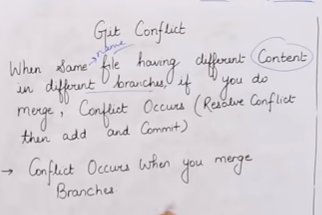 Git Conflict
When Same name file having different Content
in different branches, if you do
merge, Conflict Occurs (Resolve Conflict
then add and Commit)
→ Conflict Occurs When you merge
Branches